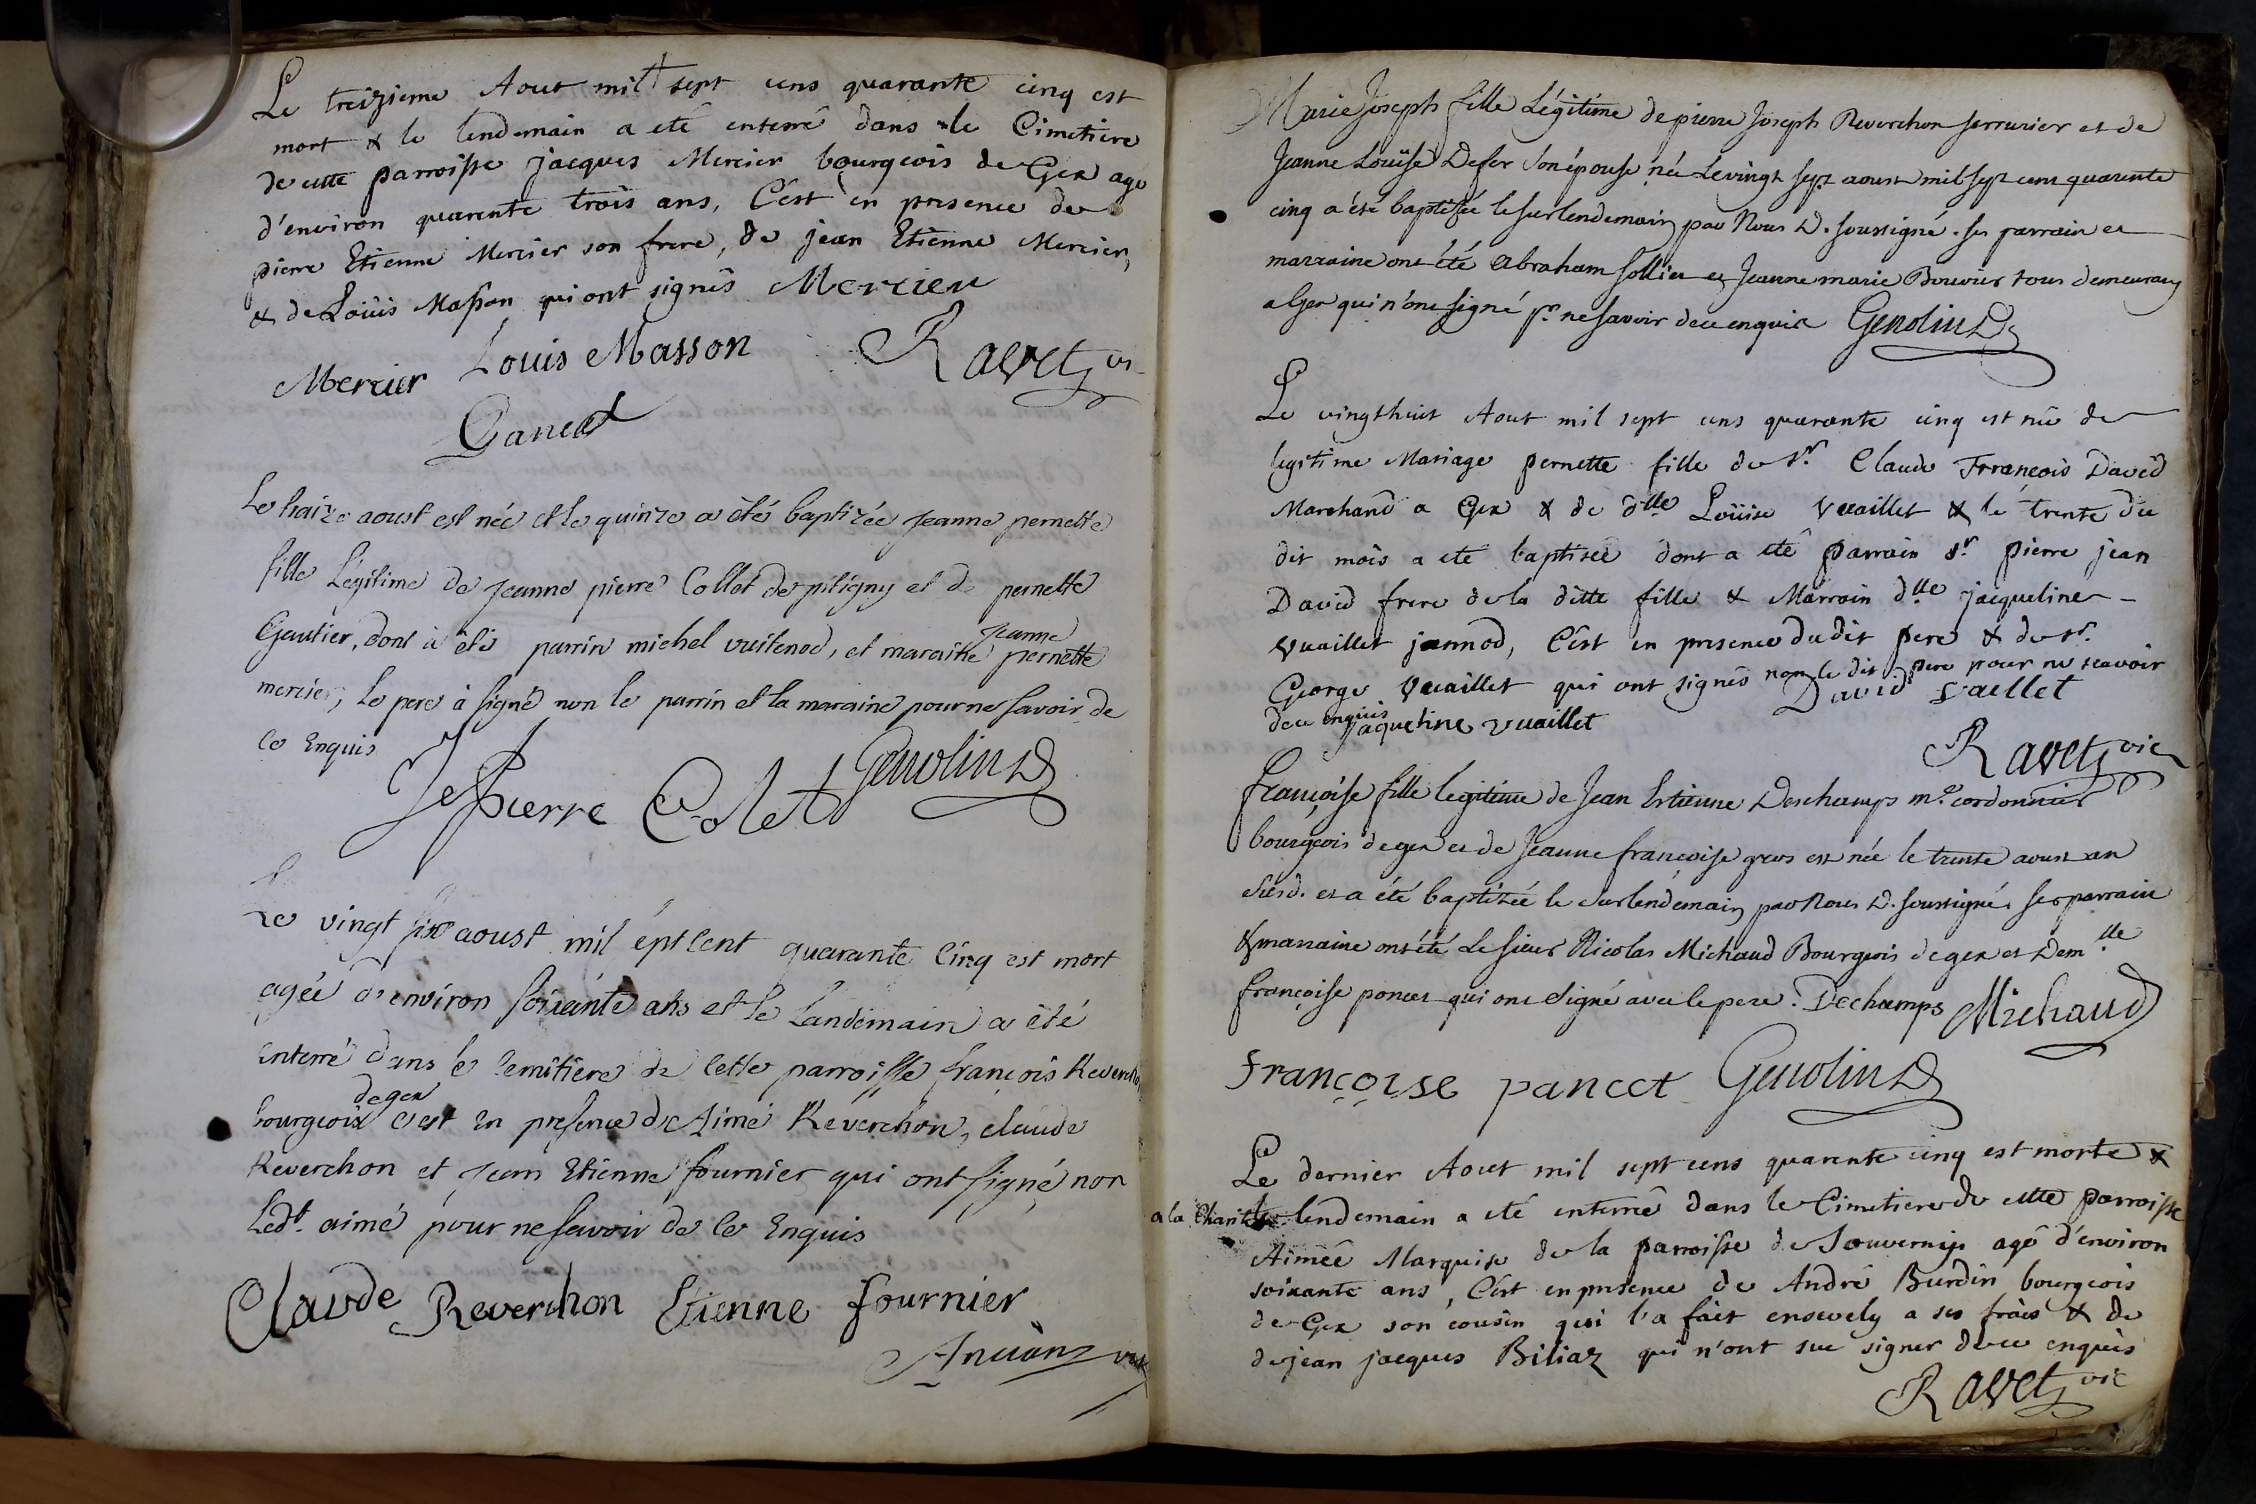 Le treizieme Aout mil sept cens quarante cinq est
mort & le lendemain a eté enterré dans le Cimetiere
de cette parroisse jacques Mercier bourgeois de Gex agé
d'environ quarente trois ans, C'est en presence de
pierre Etienne Mercier son frere, de jean Etienne Mercier,
& de Loüis Masson qui ont signés Mercier
Mercier Louis Masson Ravet vi
Pancet
Le traize aoust est née et le quinze a été baptizée jeanne pernette
fille Légitime de jeanne pierre Collet de pitigny et de pernette
Gautier, dont à étés parrin michel vuitenod, et maraine jeanne pernette
mercier, le pere à signé non le parrin et la maraine pour ne savoir de
ce Enquis
Je Pierre Colet Genolin D
Le vingt six aoust mil épt cent quarante cinq est mort
agée d'environ soixante ans et le Landemain a été
enterré dans le cemitiere de cette parroisse françois Reverchon
bourgeois de gex c'est en presence d'Aimé Reverchon, claude
Reverchon et jean Etienne fournier qui ont signé non
Ledt. aimé pour ne savoir de ce Enquis
Claude Reverchon Etienne fournier
vic
Marie Joseph fille Légitime de pierre Joseph Reverchon serrurier et de
Jeanne Louïse Defer son épouse née le vingt sept aoust mil sept cent quarente
cinq a été baptisée le surlendemain par Nous D. soussigné. ses parrain et
marraine ont été abraham sollier et Jeanne marie Bouvier tous demeurans
a Gex qui n'ont signé pr. ne savoir de ce enquis Genolin D
Le vingthuit Aout mil sept cens quarante cinq est née de
legitime Mariage pernette fille de sr. Claude François David
Marchand a Gex & de dlle Loüise Vuaillet & le trente du
dit mois a eté baptisée dont a eté parrain sr. pierre jean
David frere de la ditte fille & Marrain dlle jacqueline
Vuaillet jannod, C'est en presence du dit pere & de sr.
George Vuaillet qui ont signés non le dit pere pour ne scavoir
de ce enquis David vaillet
Jaqueline vuaillet
Ravet vic
françoise fille legitime de Jean Estienne Deschamps me. cordonnier
bourgeois de gex et de Jeanne françoise gros est née le trente aoust an
susd. et a été baptizée le surlendemain par Nous D. soussigné. ses parrain
& marraine ont été Le sieur Nicolas Michaud Bourgeois de gex et Demlle
françoise poncet qui ont signé avec le pere. Dechamps Michaud
françoise pancet Genolin D
Le dernier Aout mil sept cens quarente cinq est morte &
a la Charité le lendemain a eté enterré dans le Cimetiere de cette parroisse
Aimée Marquise de la parroisse de Souverny agé d'environ
soixante ans, C'est en presence de André Burdin bourgeois
de Gex son cousin qui l'a fait ensevely a ses frais & de
de jean jacques Biliaz qui n'ont sue signer de ce enquis
Ravet vic